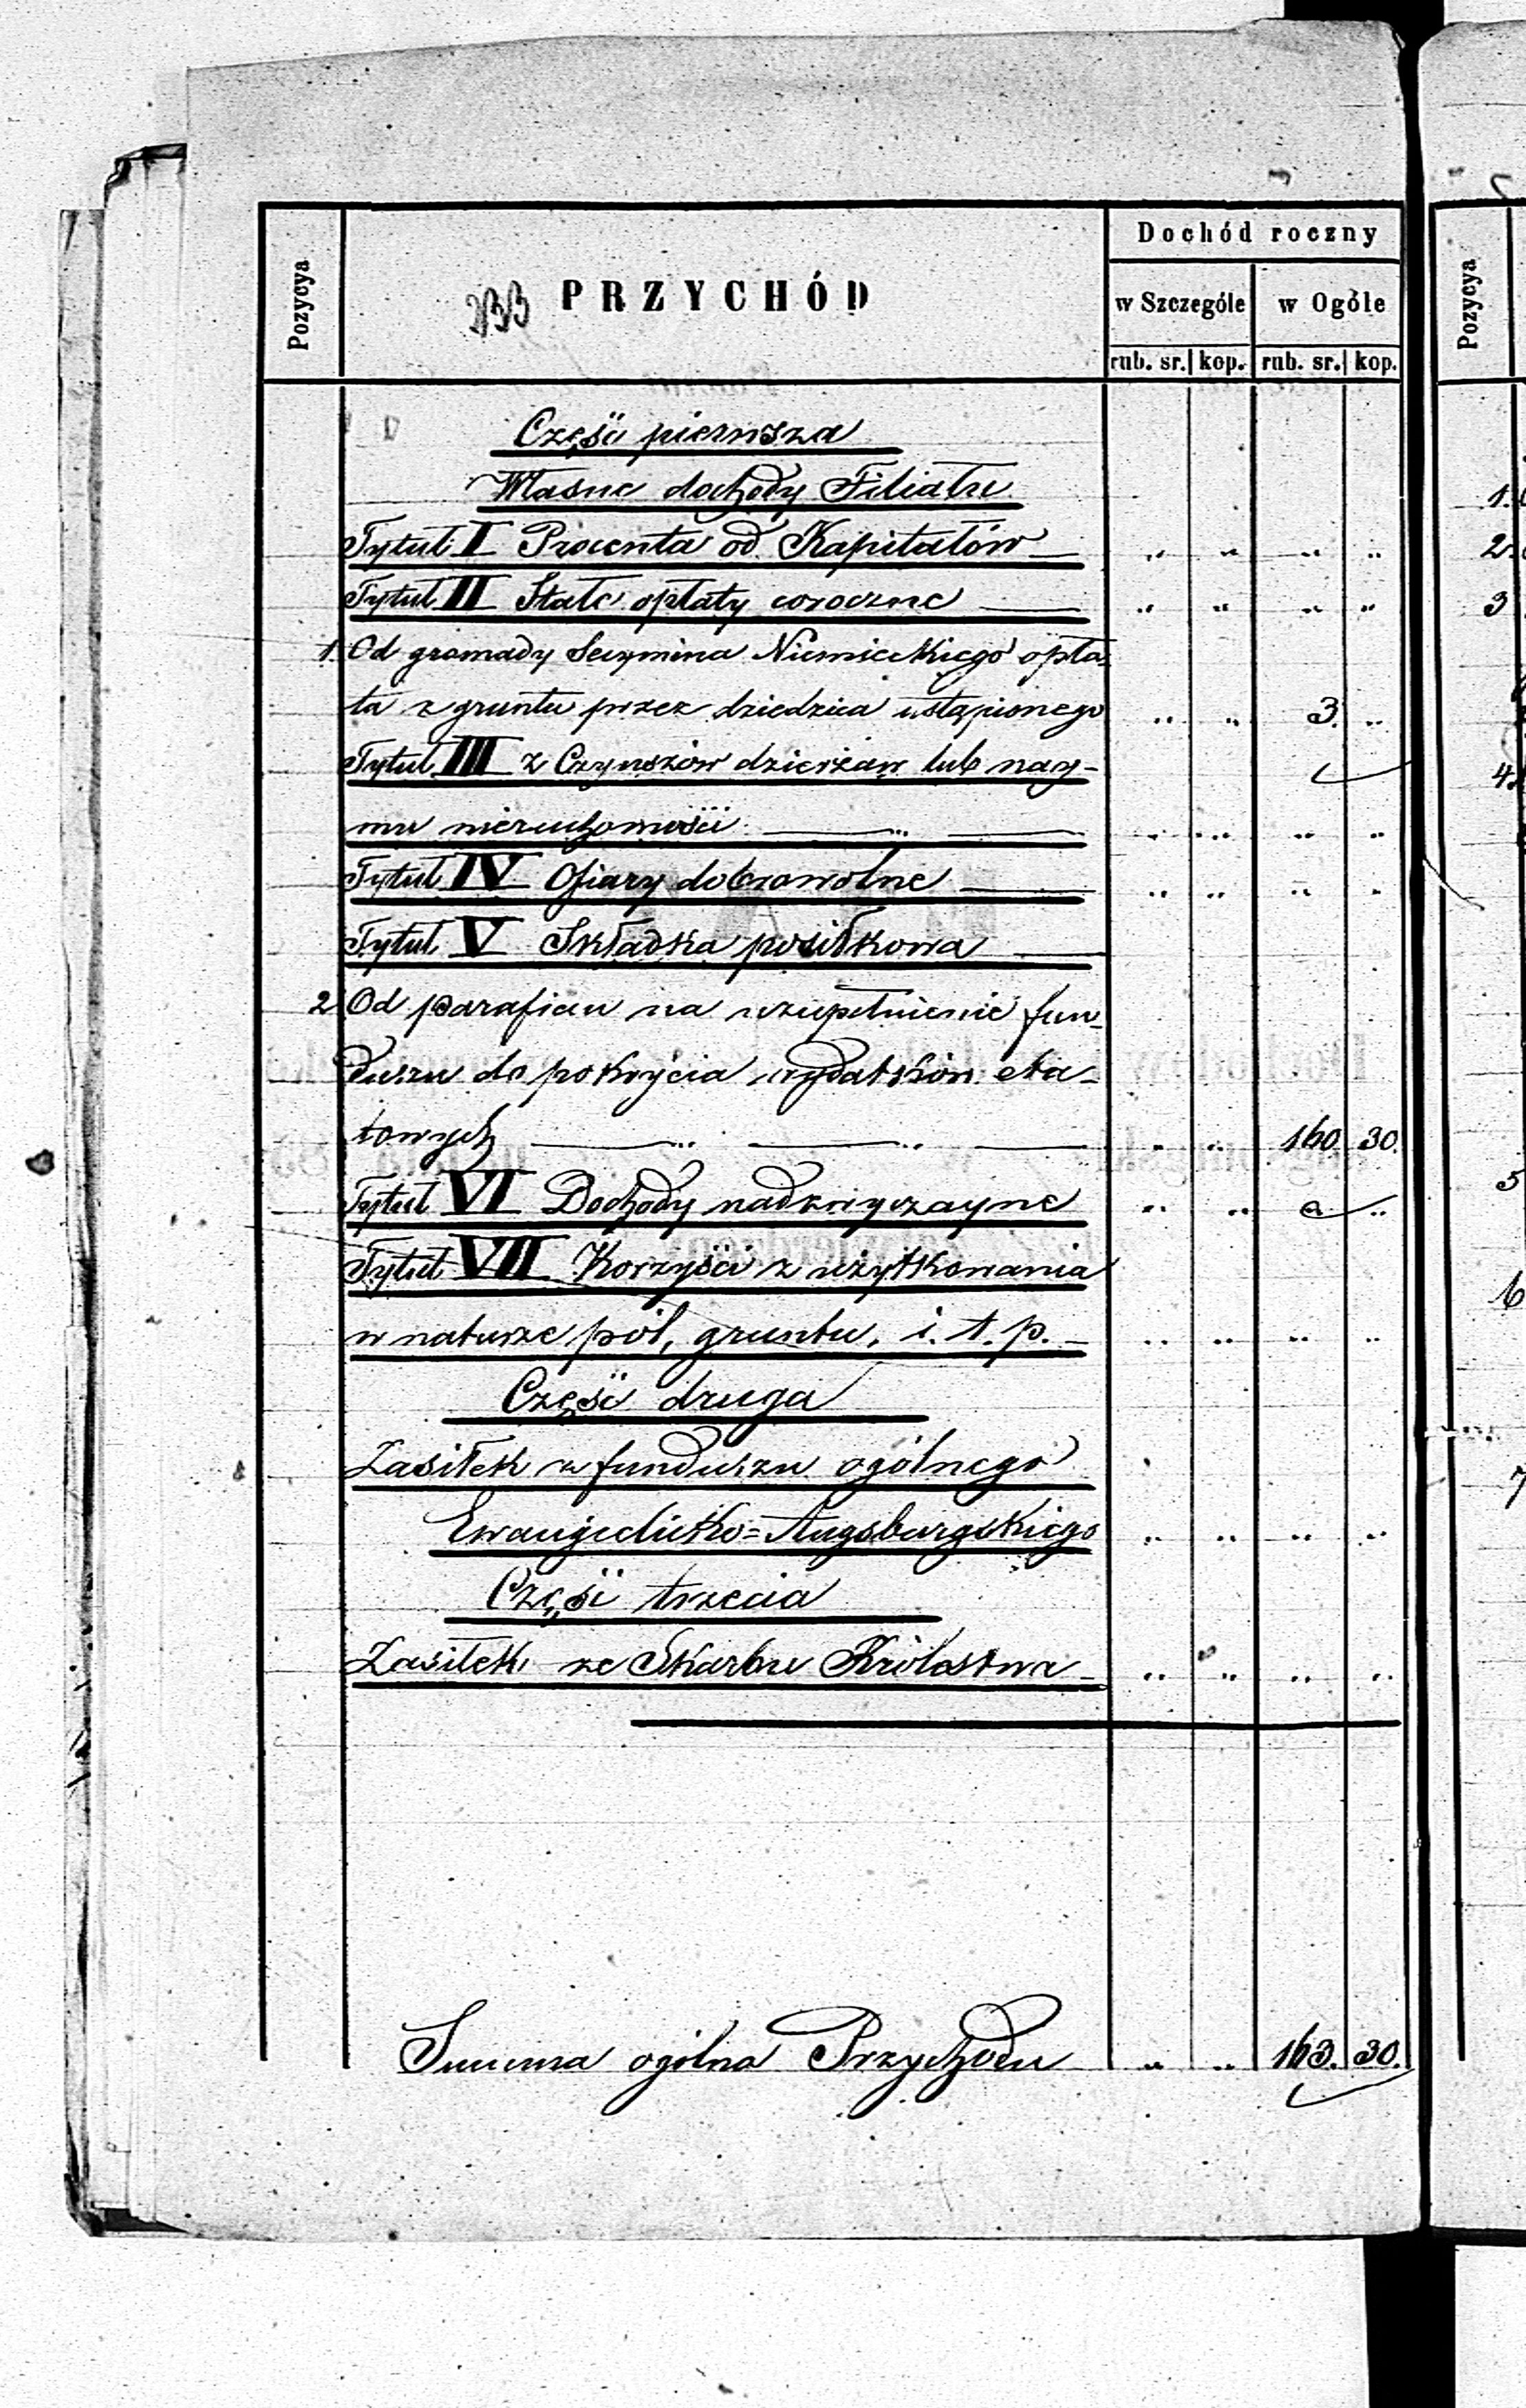 Dochód roczny
Pozycya
PRZYCHÓD
w Szczególe
w Ogóle
Pozycya
rub. sr. kop. rub. sr. kop.
Część pierwsza
Własne dochody Filiału
1.
Tytuł I Procenta od Kapitałów „ „ „ „
2.
Tytuł II Stałe opłaty coroczne „ „ „ „
3
1. Od gromady Secymina Niemieckiego opła-
ta z gruntu przez dziedzica ustąpionego „ „ 3. „
Tytuł III z Czynszów dzierżaw lub nay-
4.
mu nieruchomości „ „ „ „ „
Tytuł IV Ofiary dobrowolne „ „ „ „
Tytuł V Składka posiłkowa
2. Od parafian na uzupełnienie fun-
duszu do pokrycia wydatków eta-
towych „ „ „ „ 160. 30.
5
Tytuł VI Dochody nadzwyczayne „ „ „ „
Tytuł VII Korzyści z użytkowania
6
w naturze pól, gruntu, i. t. p. - „ „ „ „
Część druga
Zasiłek z funduszu ogólnego
7
Ewangelicko=Augsburgskiego „ „ „ „
Część trzecia
Zasiłek ze Skarbu Królestwa - „ „ „ „
Summa ogólna Przychodu „ „ 163. 30.